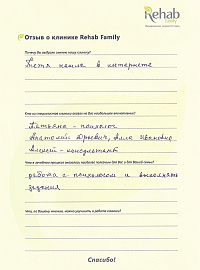 Rehab
Family
Отзыв о клинике Rehab Family
Почему Вы выбрали именно нашу клинику?
Тетя нашла в интернете
Кто из специалистов клиники оказал на Вас наибольшее впечатление?
Татьяна - психолог
Анатолий Юрьевич, Алла Ивановна
Алексей - консультант
Что в лечебном процессе оказалось наиболее полезным для Вас и для Вашей семьи?
работа с психологом и выполнять
задания
Что, по Вашему мнению, нужно улучшить в работе клиники?
Спасибо!